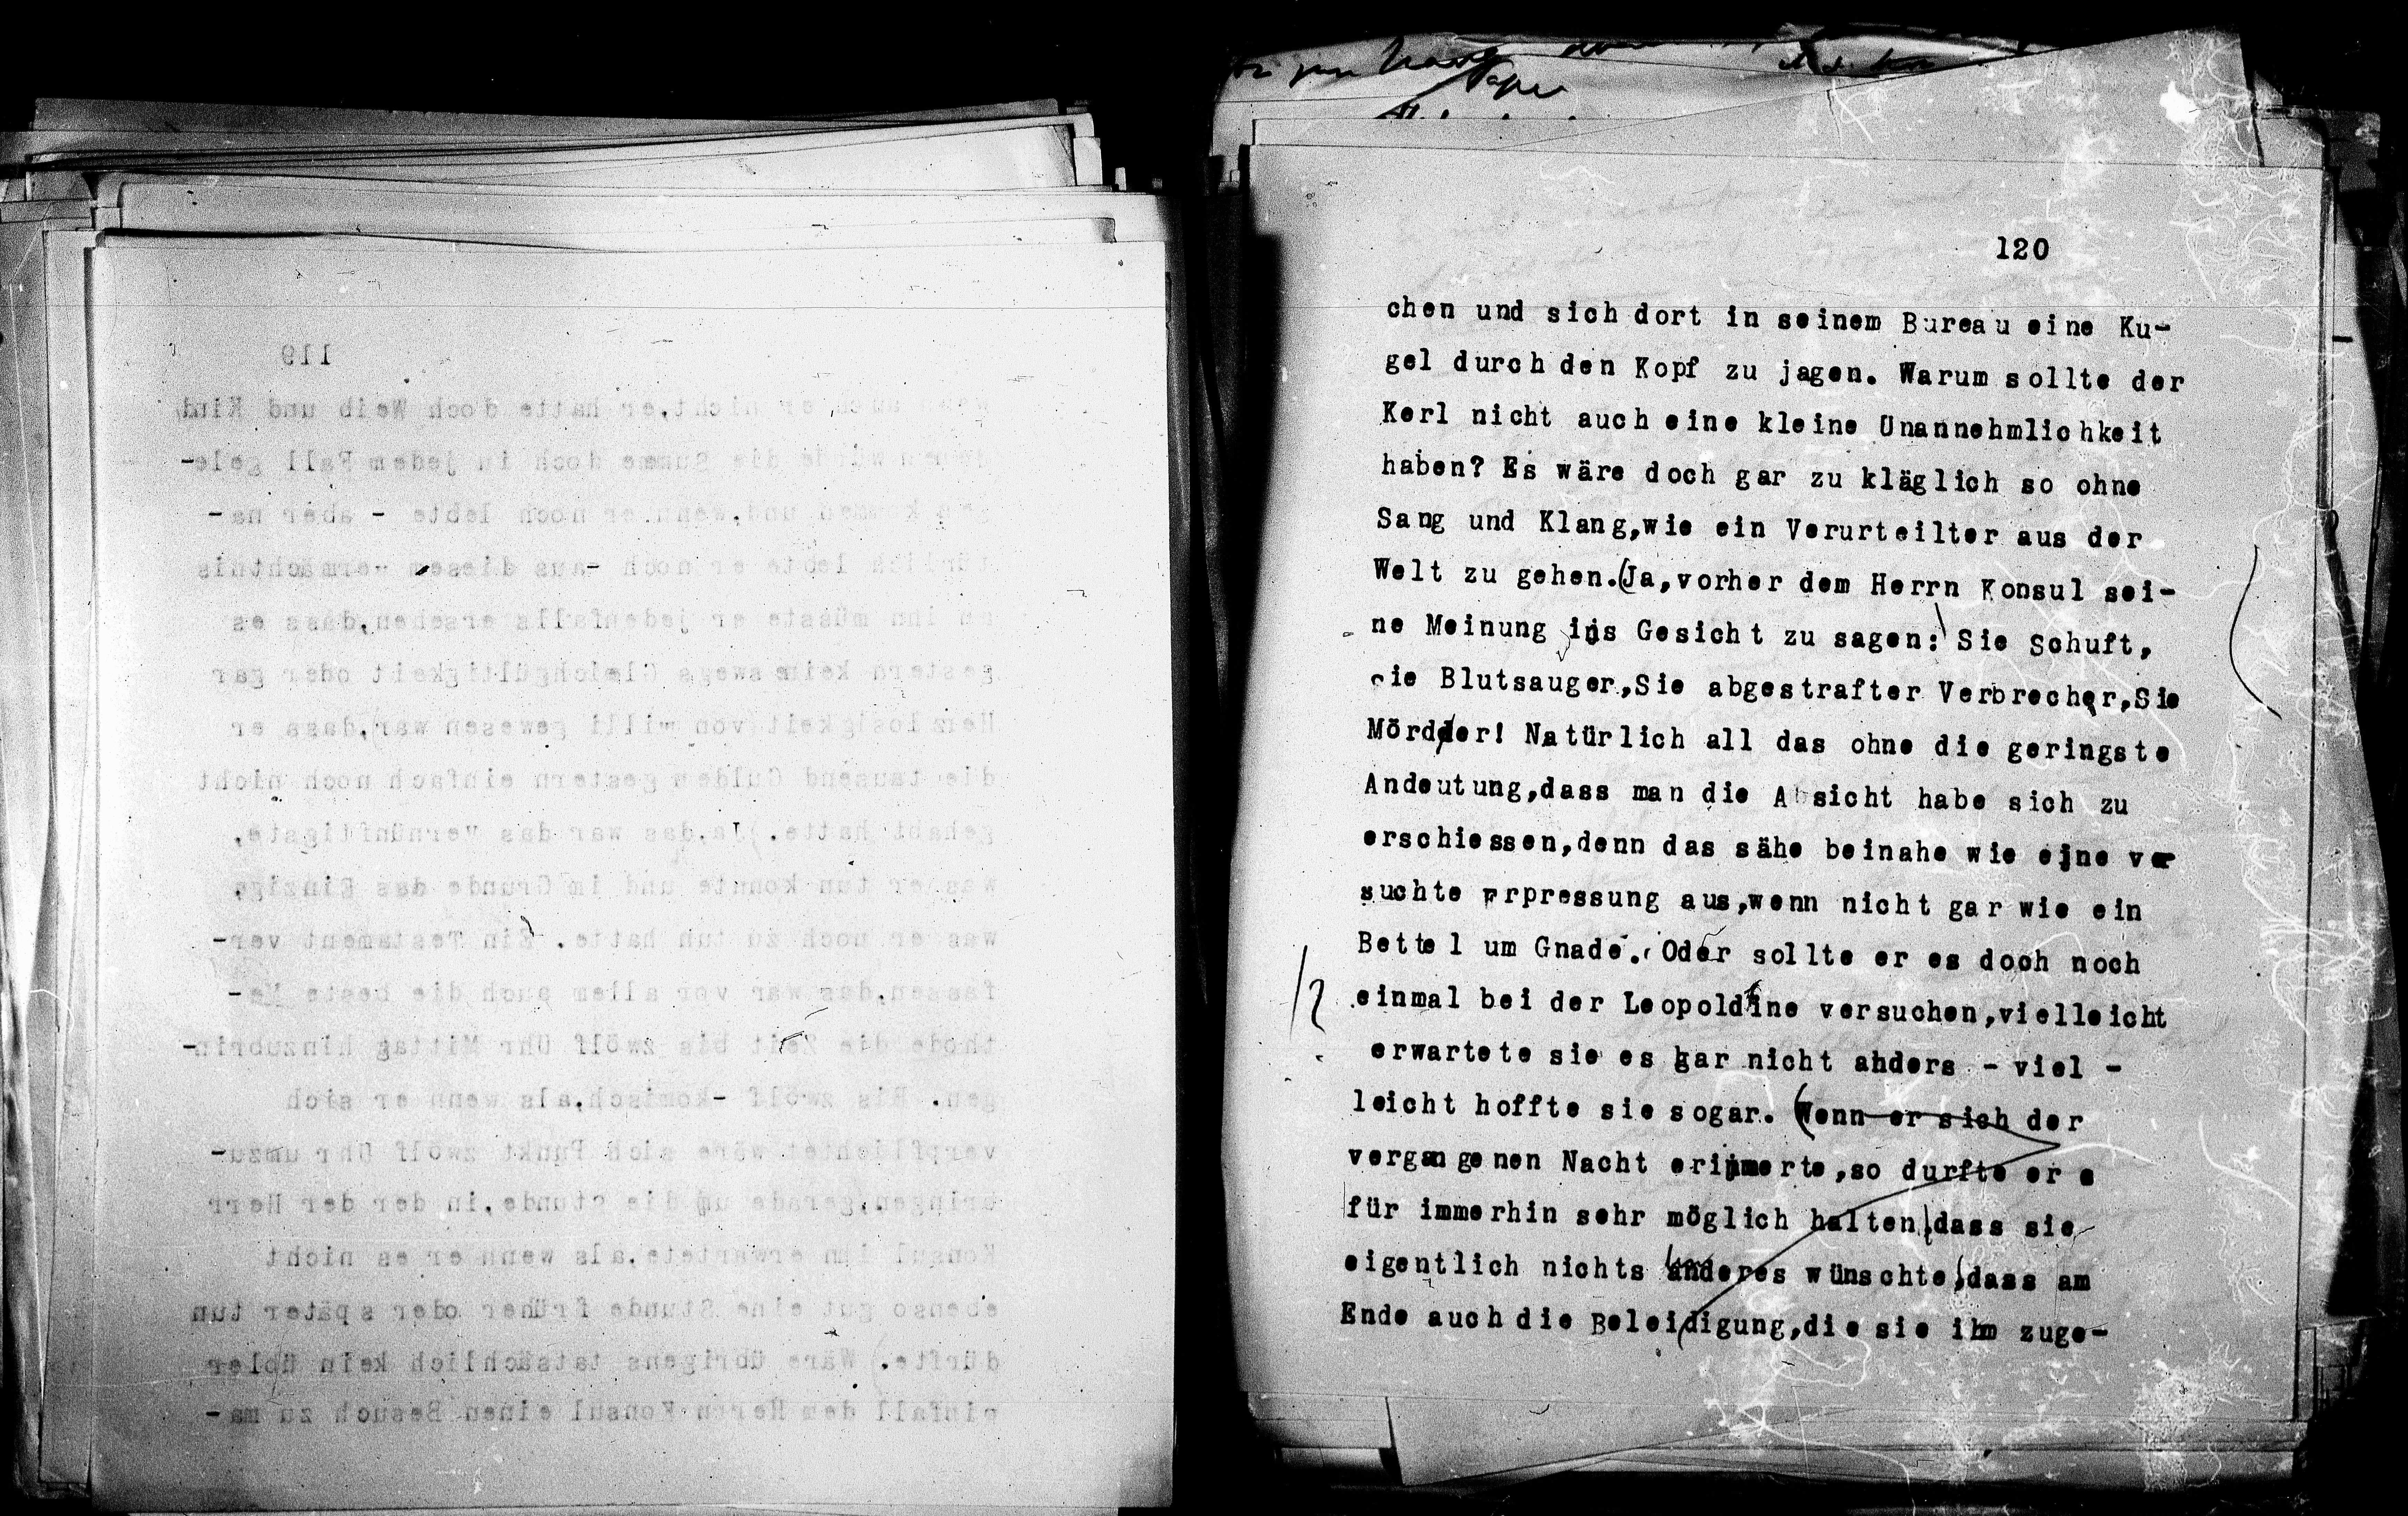 119
Weib und Kind
doch in jedem Fall gele-
noch lebte - aber na-
noch - aus diesem Vermächtnis
an ihn müsste er jedenfalls ersehen,dass es
gestern keineswegs Gleichgültigkeit oder gar
Herzlosigkeit von Willi gewesen war,dass er
die tausend Gulden gestern einfach noch nicht
gehabt hatte. Ja,das war das Vernünftigste,
was er tun konnte und im Grunde das Einzige,
was er noch zu tun hatte. Ein Testament ver-
fassen,das war vor allem auch die beste Me-
thode die Zeit bis zwölf Uhr Mittag hinzubrin-
gen. Bis zwölf -komisch,als wenn er sich
verpflichtet wäre sich Punkt zwölf Uhr umzu-
bringen,gerade um die Stunde,in der der Herr
Konsul ihn erwartete,als wenn er es nicht
ebenso gut eine Stunde früher oder später tun
dürfte. Wäre übrigens tatsächlich kein übler
Einfall dem Herrn Konsul einen Besuch zu ma-
120
chen und sich dort in seinem Bureau eine Ku-
gel durch den Kopf zu jagen. Warum sollte der
Kerl nicht auch eine kleine Unannehmlichkeit
haben? Es wäre doch gar zu kläglich so ohne
Sang und Klang,wie ein Verurteilter aus der
Welt zu gehen.(Ja,vorher dem Herrn Konsul sei-
ne Meinung ins Gesicht zu sagen: Sie Schuft,
Sie Blutsauger,Sie abgestrafter Verbrecher,Sie
Mördder! Natürlich all das ohne die geringste
Andeutung,dass man die Absicht habe sich zu
erschiessen,denn das sähe beinahe wie eine ver
suchte Erpressung aus,wenn nicht gar wie ein
Bettel um Gnade. Oder sollte er es doch noch
einmal bei der Leopoldine versuchen,vielleicht
erwartete sie es gar nicht anders - viel -
leicht hoffte sie sogar. (Wenn er sich der
vergangenen Nacht erinnerte,so durfte er e
für immerhin sehr möglich halten,dass sie
eigentlich nichts anderes wünschte,dass am
Ende auch die Beleidigung,die sie ihm zuge-